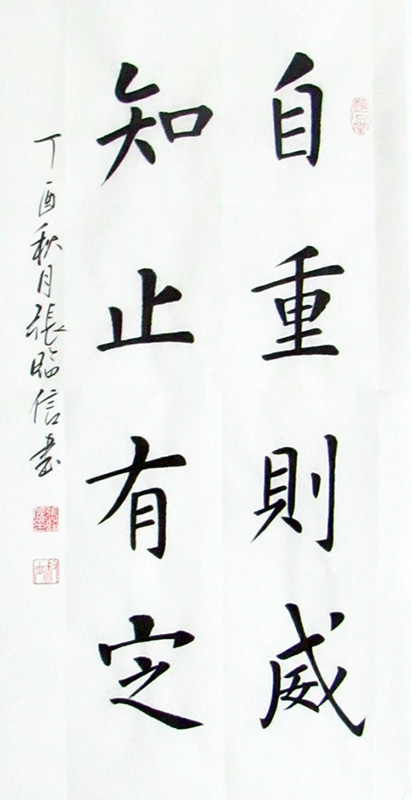 自重則威
知止有定
丁酉秋月張臨信書